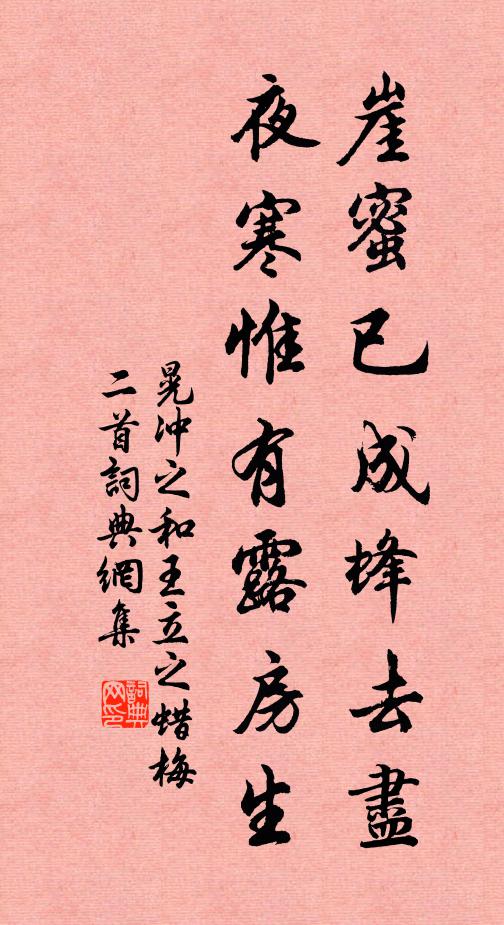 崖蜜已成蜂去盡
夜寒惟有露房生
晁沖之和王立之蜡梅
二首詞典網集
詞典
网印